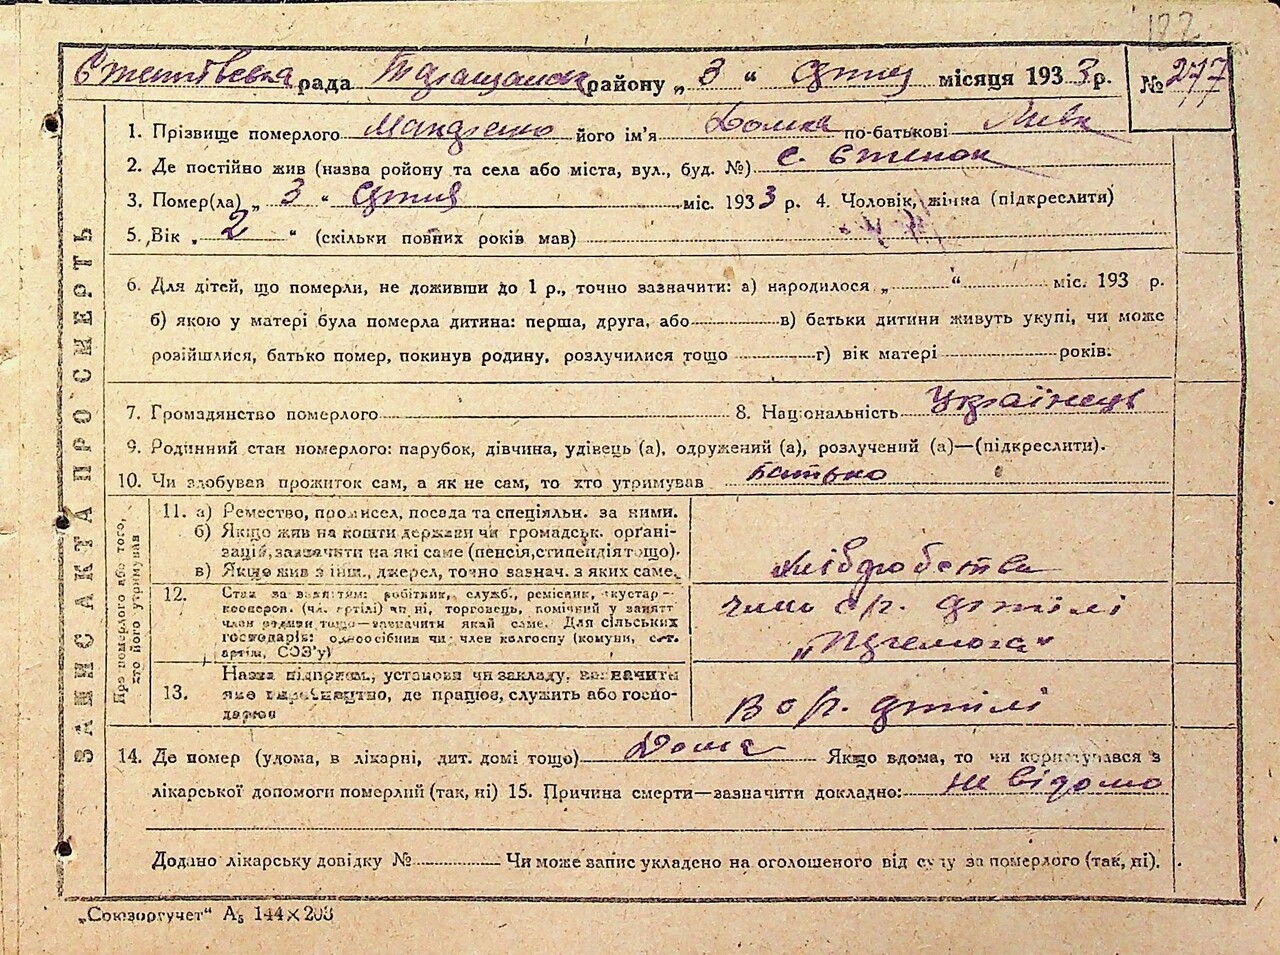 122
рада районy „ 3 “ місяця 1933 р. № 277
1. Прізвище померлого його ім'я Домка по-батькові
2. Де постійно жив (назва району та села або міста, вул., буд. №) с. Степок
3. Помер(ла) „ 3 “ міс. 1933 р. 4. Чоловік, жінка (підкреслити)
5. Вік „ 2 “ (скільки повних років мав)
6. Для дітей, що померли, не доживши до 1 р., точно зазначити: а) народилося „ “ міс. 193 р.
б) якою у матері була померла дитина: перша, друга, або в) батьки дитини живуть укупі, чи може
розійшлися, батько помер, покинув родину, розлучилися тощо г) вік матері років.
7. Громадянство померлого 8. Національність Українець
9. Родинний стан померлого: парубок, дівчина, удівець (а), одружений (а), розлучений (а)—(підкреслити).
10. Чи здобував прожиток сам, а як не сам, то хто утримував батько
ЗАПИС АКТА ПРО СМЕРТЬ
Про померлого або того, хто його утримував
11. а) Ремество, промисел, посада та спеціяльн. за ними.
б) Якщо жив на кошти держави чи громадськ. орґані-
зацій, зазначити на які саме (пенсія, стипендія тощо).
в) Якщо жив з інш., джерел, точно зазнач. з яких саме.
Хліборобства
12. Стан за заняттям: робітник, служб., ремісник, кустар—
кооперов. (чл. артілі) чи ні, торговець, помічний у занятт
член родини тощо—зазначити який саме. Для сільських
господарів: одноосібник чи член колгоспу (комуни, с.-г.
артіл, СОЗ'у)
член с.г. артілі
13. Назва підприєм., установи чи закладу, зазначити
яке виробництво, де працює, служить або госпо-
дарює
14. Де помер (удома, в лікарні, дит. домі тощо) Дома Якщо вдома, то чи користувався з
лікарської допомоги померлий (так, ні) 15. Причина смерти—зазначити докладно: не відомо
Додано лікарську довідку № Чи може запис укладено на оголошеного від суду за померлого (так, ні).
„Союзоргучет“ А₅ 144×203